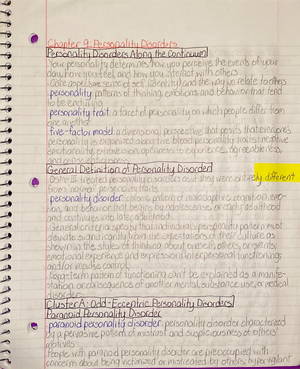 Chapter 9: Personality Disorders
Personality Disorders Along the Continuum
Your personality determines how you perceive the events of your
day, how you feel, and how you interact with others
and the way we relate to others
personality: patterns of thinking, emotions and behavior that tend
to be enduring
personality trait: a facet of personality on which people differ from
one another
five-factor model: a dimensional perspective that posits that everyone's
personality is organized along five broad personality traits:
General Definition of Personality Disorder
DSM- treated personality disorders as if they were entirely different
from normal personality traits
personality disorder: chronic pattern of maladaptive cognition, emo-
tion, and behavior that begins by adolescence or early adulthood
and continues into later adulthood
General criteria specify that individual's personality pattern must
deviate significantly from the expectations of their culture as
shown in the styles of thinking about oneself, others, or events,
emotional experience and expression, interpersonal functioning,
and/or impulse control
Long-term pattern of functioning can't be explained as a manifes-
tation or consequence of another mental, substance use, or medical
disorder
Cluster A: Odd-Eccentric Personality Disorders
Paranoid Personality Disorder
paranoid personality disorder: personality disorder characterized
by a pervasive pattern of mistrust and suspiciousness of others'
motives
People with paranoid personality disorder are preoccupied with
concern about being victimized or mistreated by others; hypervigilant